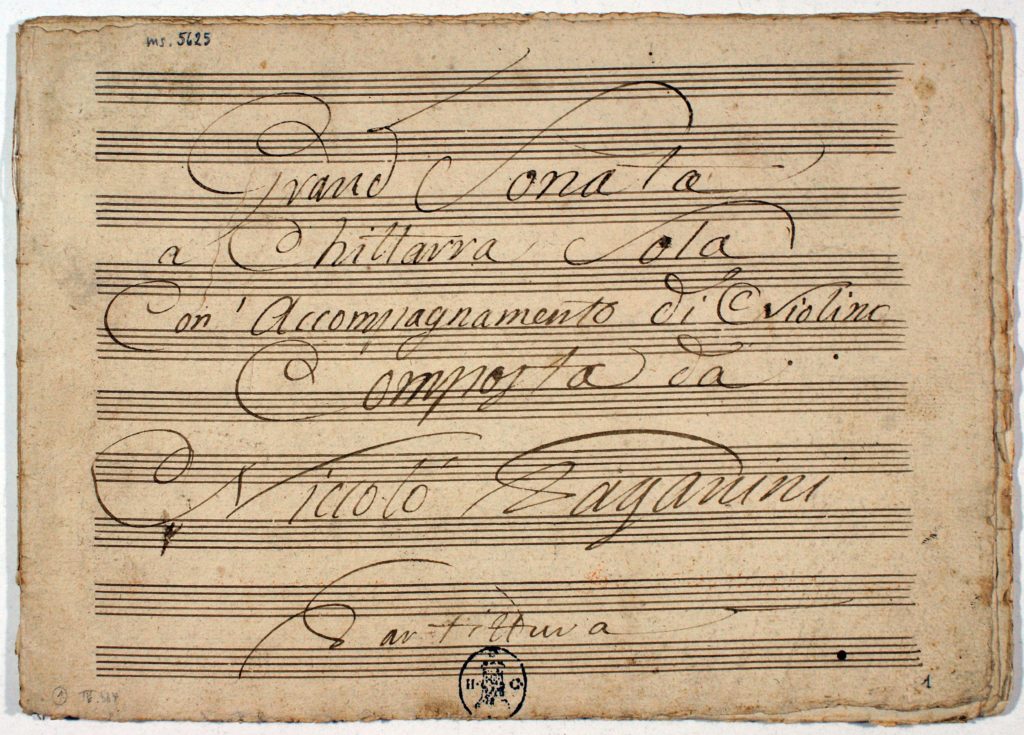 ms. 5625
Grand Sonata
a Chittarra Sola
Con' Accompagnamento di Violino
Composta da
Niccoló Paganini
Partittura
H. G.
1
1